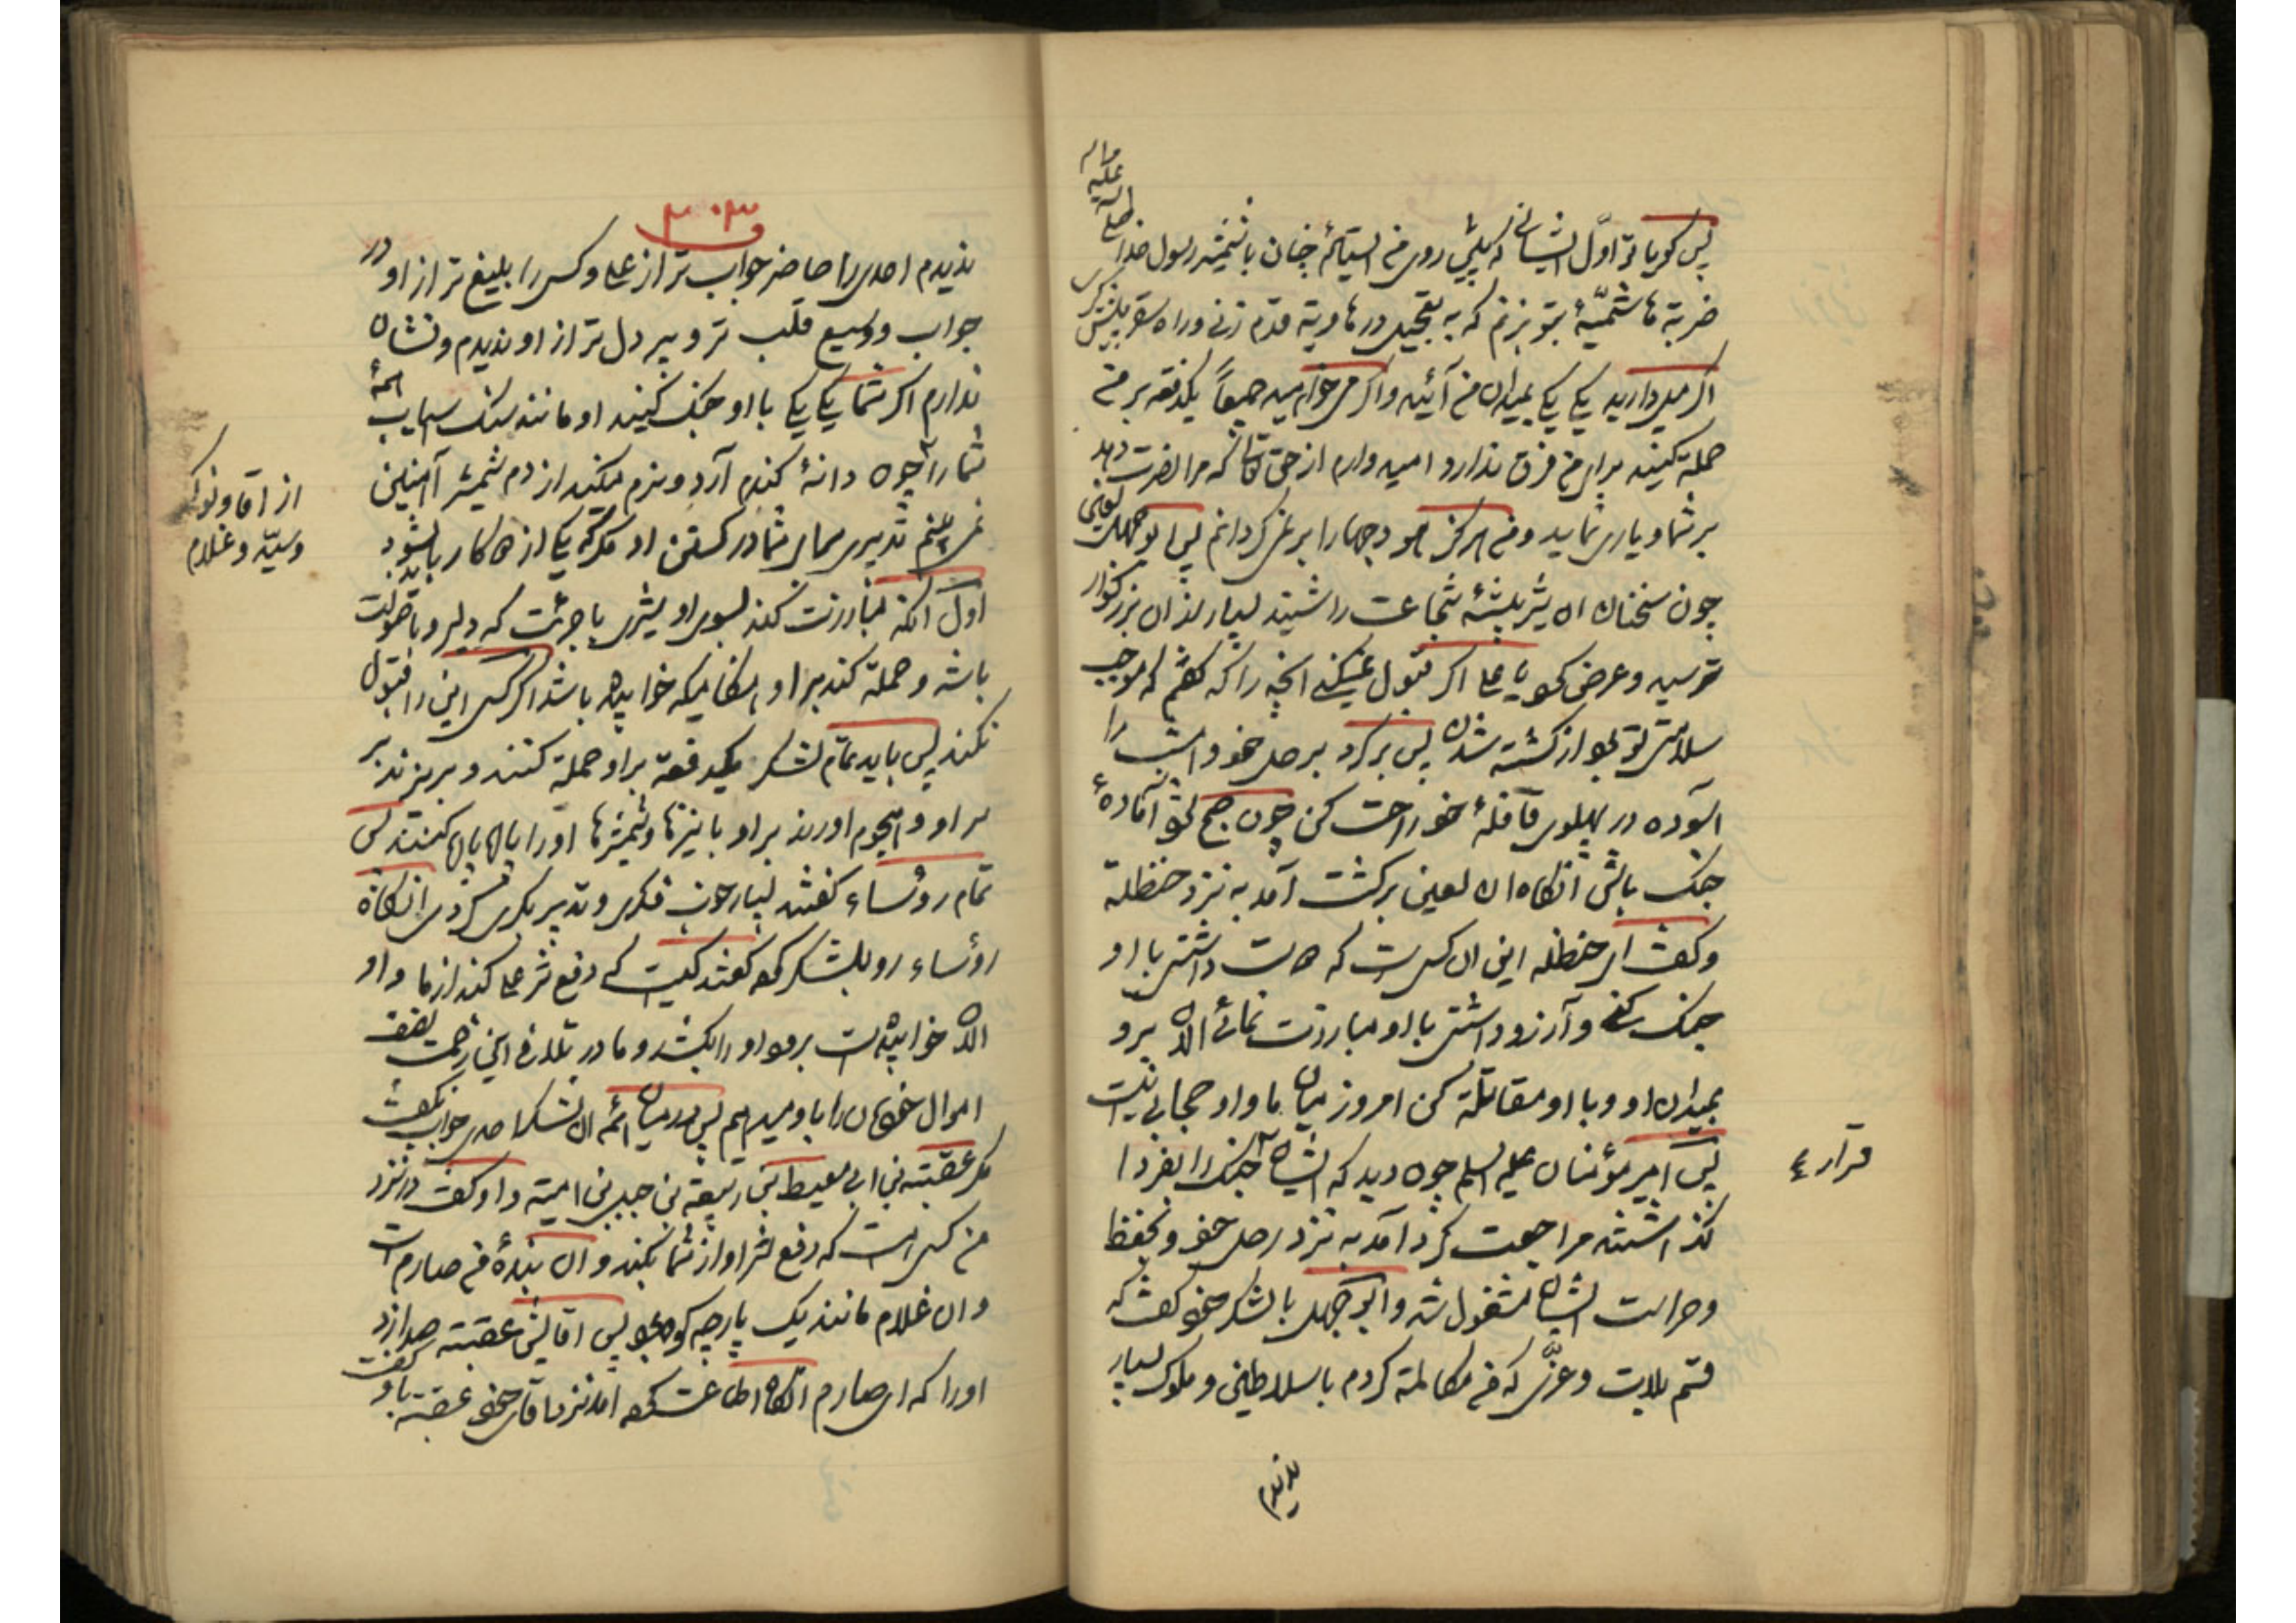 پس گویا تو اوّل ایشانی که پیش روی من ایستاده چنان با شمشیر رسول خدا صلی الله علیه واله
ضربة هاشمیّهٔ بتو بزنم که به تعجیل در هاویة قدم زنی و راه سقر پیش گیری
اگر میل دارید یکی یکی بمیدان من آئید و اگر میخواهید جمیعاً یکدفعه بر من
حملة کنید برای من فرق ندارد امید دارم از حق تعالی که مرا نصرت دهد
بر شما و یاری نماید و من هرگز بر نمی گردانم پس ابوجهل لعین
چون سخنان ان شیر بیشهٔ شجاعت را شنید بسیار از ان بزرگوار
ترسید و عرض کرد یا علی اگر قبول نمیکنی انچه را که گفتم که موجب
سلامتی تو بود از کشته شدن پس برگرد بر رحل خود و امشب را
اسوده در پهلوی قافلهٔ خود راحت کن چون صبح شود آمادهٔ
جنگ باش انگاه ان لعین برگشت آمد به نزد حنظلة
و گفت ای حنظله این ان کسی است که دوست داشتی با او
جنگ کنی و آرزو داشتی با او مبارزت نمائی الان برو
بمیدان او و با او مقاتلة کن امروز میان ما و او حجابی نیست
پس امیر مؤمنان علیه السلم چون دید که ایشان جنگ را بفردا
قرار ع
گذاشتند مراجعت کرد آمد به نزد رحل خود و بحفظ
و حراست ایشان مشغول شد و ابوجهل با لشکر خود گفت که
قسم بلات و عزّی که من مکالمة کردم با سلاطین و ملوک بسیار
ندیدم
۳۰۳
ندیدم احدی را حاضر جواب تر از علی و کسی را بلیغ تر از او در
جواب و وسیع قلب تر و پر دل تر از او ندیدم و نشان
ندارم اگر شما یکی یکی با او جنگ کنید او مانند سنگ اسیاب همهٔ
شما را چون دانهٔ گندم آرد و نرم میکند از دم شمشیر آهنین
نمی بینم تدبیری برای شما در کشتن او مگر یکی از دو کار باید بشود
از اقا و نوکر
و سیّد و غلام
اول آنکه مبارزت کند بسوی او بشری با جرئت که دلیر و با صولت
باشد و حملة کند بر او هنگامیکه خوابیده باشد اگر کسی این را قبول
نکند پس باید تمام لشکر یکدفعة بر او حملة کنند و بریزند بر
سر او و هجوم اورند بر او با نیزها و شمشیرها او را پامال کنند پس
تمام رؤساء گفتند بسیار خوب فکری و تدبیر بکری کردی انگاه
رؤساء رو بلشکر کرده گفتند کیست که دفع شر علی کند از ما و او
الان خوابیده است برود او را بکشد و ما در تلافی این زحمت نصف
اموال خودمان را باو میدهیم پس در میان همهٔ ان لشکر احدی جواب نگفت
مگر عقبة بن ابی معیط بن ربیعة بن جبیر بن امیّة و او گفت در نزد
من کسی است که دفع شر او از شما بکند و ان بندهٔ من صارم است
و ان غلام مانند یک پارچه کوه بود پس اقایش عقبة صدا زد
او را که ای صارم انگاه اطاعت کرده امد نزد اقای خود عقبة باو گفت